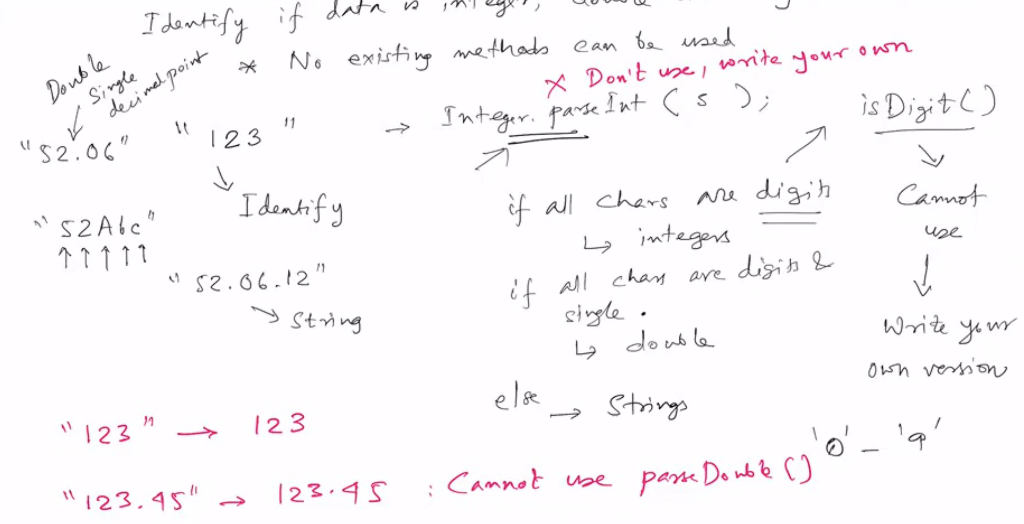 Identify if data is integer, double
* No existing methods can be used
Double
Single
decimal point
x Don't use, write your own
"52.06"
"123"
→ Integer.parseInt(s);
isDigit()
↓ Identify
"52Abc"
↑↑↑↑↑
"52.06.12"
↳ String
if all chars are digits
↳ integers
if all chars are digits &
single .
↳ double
else → Strings
Cannot
use
↓
Write your
own version
"123" → 123
'0' - '9'
"123.45" → 123.45 : Cannot use parseDouble()